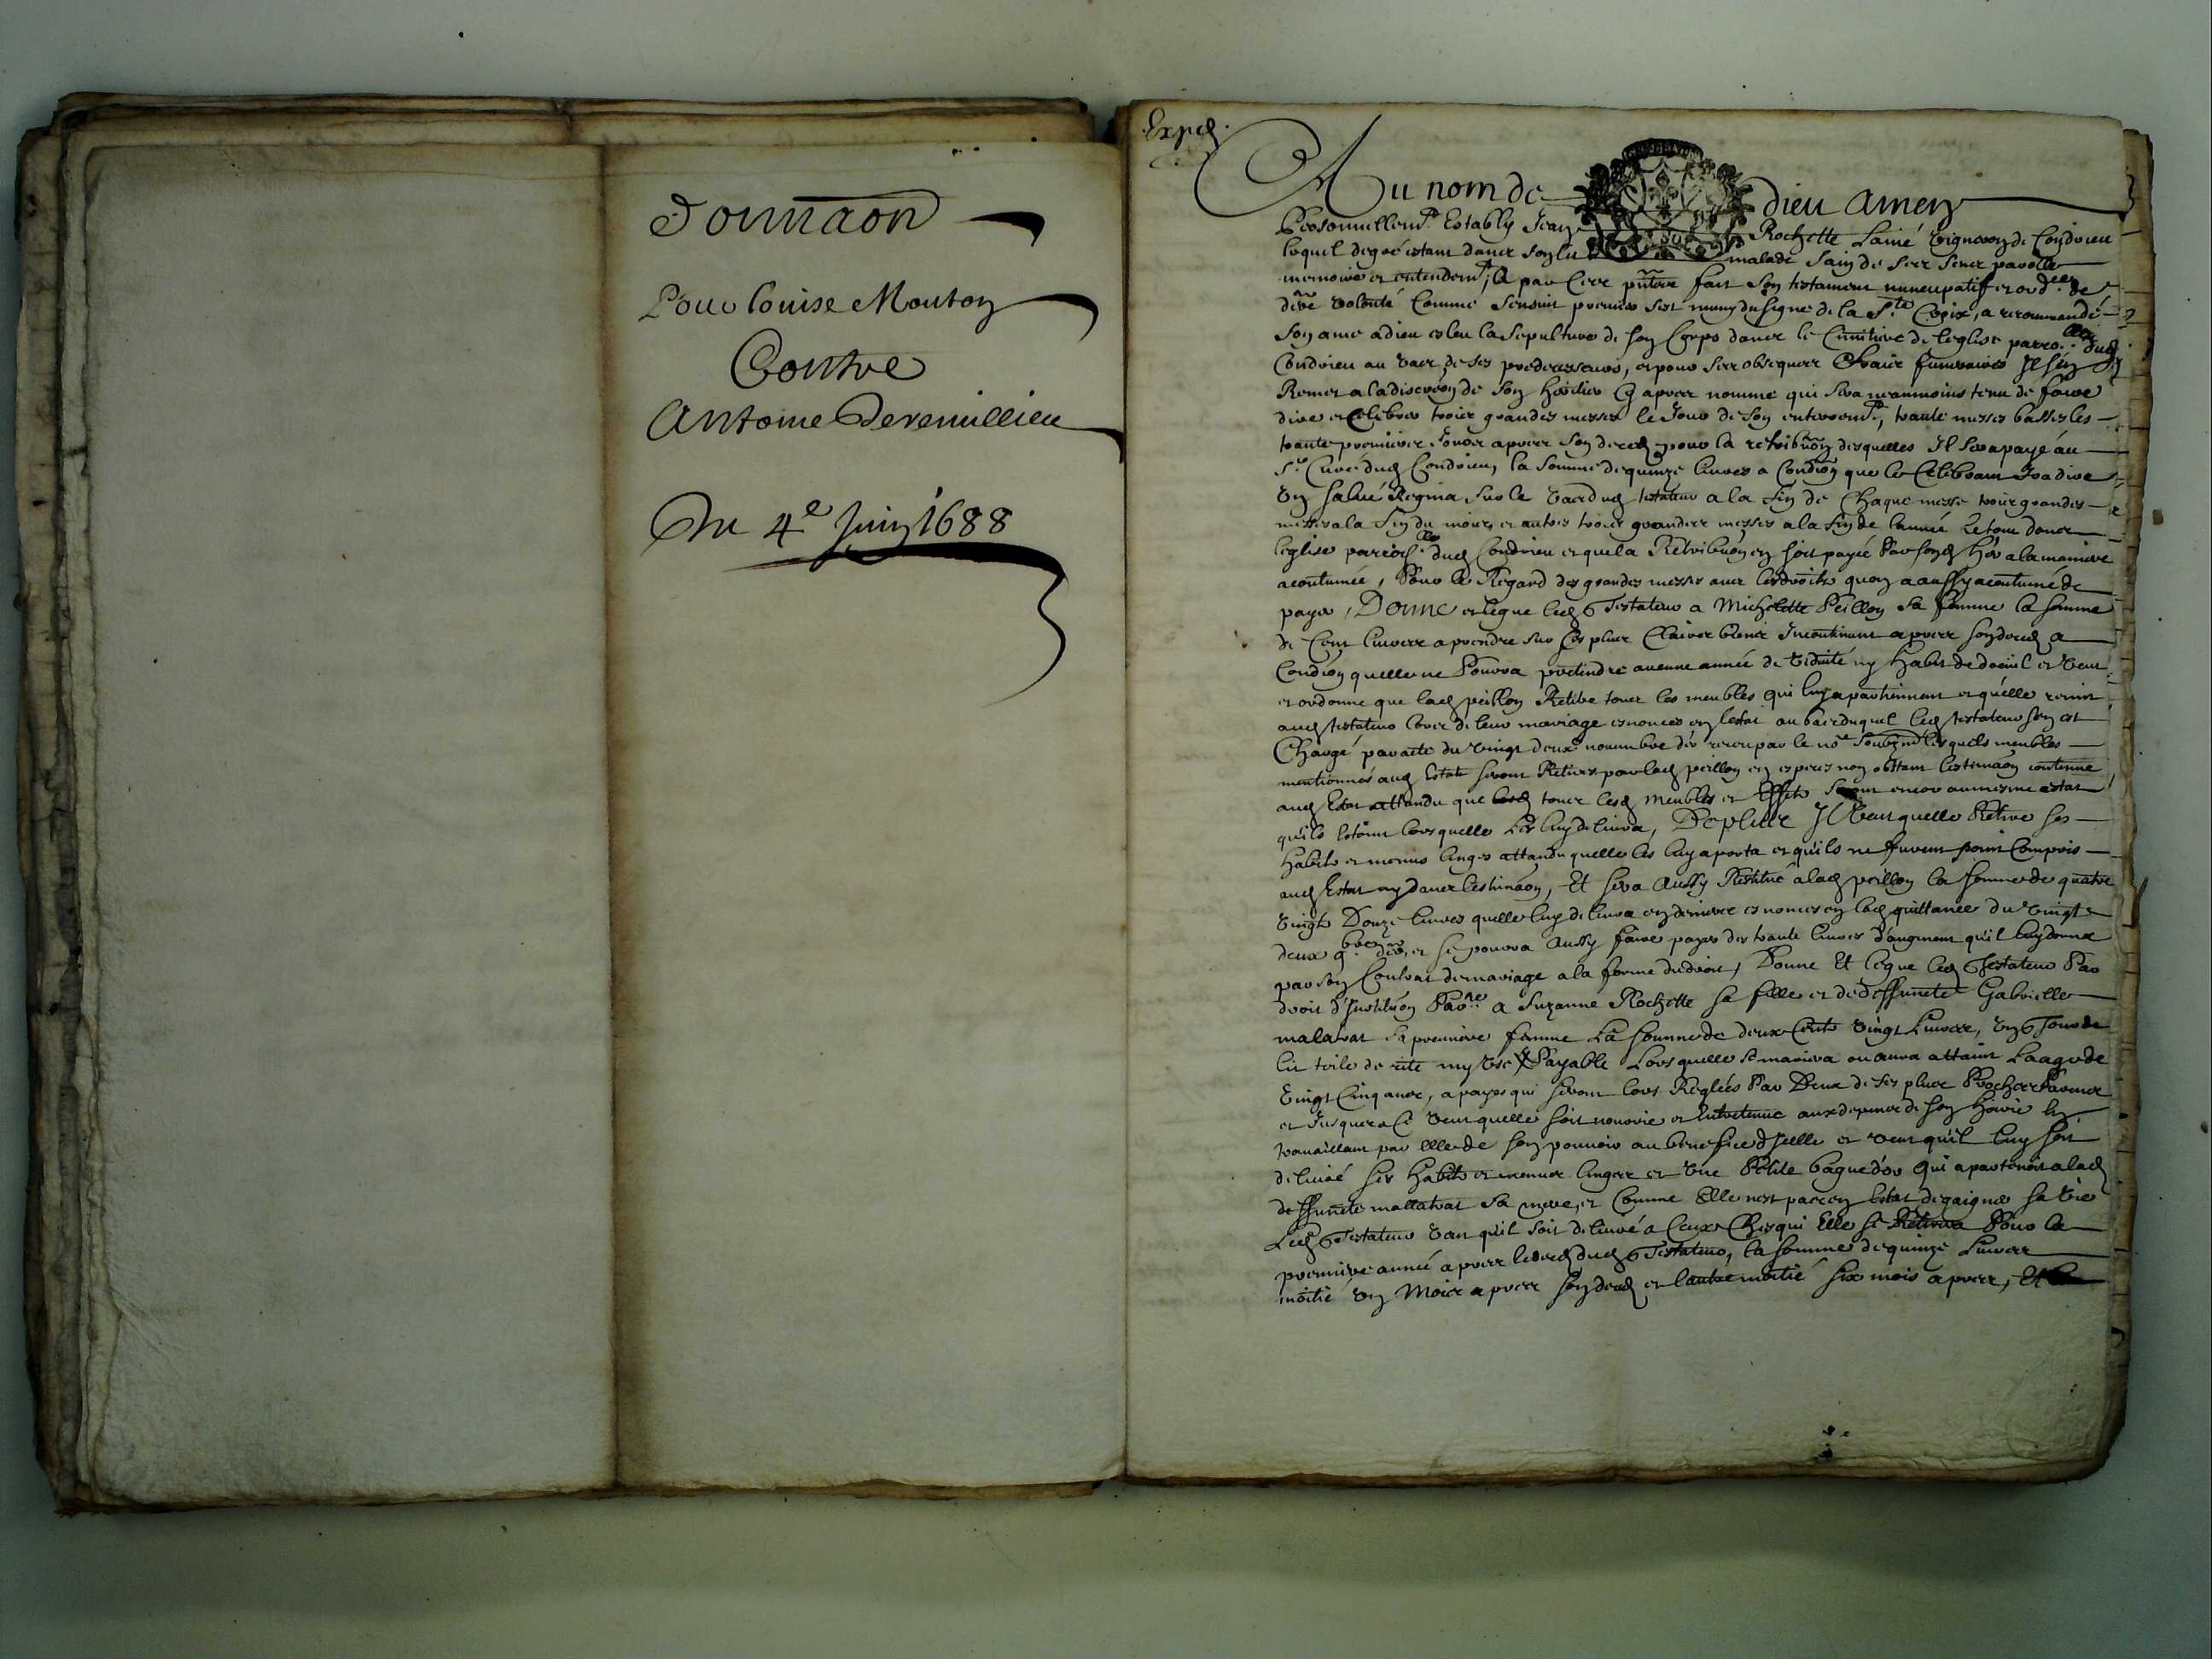 Donnaon
Pour louise Mouton
Contre
Antoine Deremillieu
Du 4e Juin 1688
Exped.
Au nom de dieu Amen
Personnellemt. Estably Jean Rochette Lainé vigneron de Condrieu
lequel de gré estant dancs son lit malade sain de ses sencs parolle
memoire et entendemt, A par Ces pntes fait son testament nuncupatif et ord de
derre volonté Comme sensuit premier sest muny du signe de la Ste Croix, a recommandé
son ame a dieu esleu la sepulture de son Corps dancs le Cimitiere de leglise parro.lle dud
Condrieu au vacs de ses predecesseurs, et pour ses obseques & fraix funeraires Il sen
Remet a la discreon de son heritier Cy apres nommé qui sera neanmoins tenu de faire
dire et Celebrer trois grandes messes le Jour de son enterremt, trante messes basses les
trante premiers Jours apres son deced pour la retribuon desquelles Il sera payé au
Sr. Curé dud Condrieu, la somme de quinze livres a Condion que le Celebrant Ira dire
un salve Regina sur le vas dud testateur a la fin de Chaque messe trois grandes
messes a la fin du mois, et autres trois grandes messes a la fin de lannée le tout dancs
leglise parroch.lle dud Condrieu et que la Retribuon en soit payée Par sond her a la maniere
acoutumée, Pour le Regard des grandes messes avec les droits quon a aussy acoutumé de
payer, Donne et legue led Testateur a Michelette Peillon sa femme la somme
de Cent livres a prendre sur Ses plus Clairs biens Incontinant apres son deced a
Condion quelle ne Pourra pretendre aucune année de viduité ny habit de doeuil et veut
et ordonne que lad peillon Retire tous les meubles qui luy apartiennent et quelle remit
aud testateur lors de leur mariage enonces en lestat au bas duquel led testateur sen est
Chargé par acte du vingt deux novembre der receu par le nore soubzné lesquels meubles
mentionnés aud Estat seront Retirés par lad peillon en especes non obstant lestimaon contenue
aud Estat attandu que tous lesd meubles et Effets sont encor au mesme estat
quils estoint lors quelle les luy delivra, De plus Il veut quelle Retire ses
habits et menus linges attandu quelle les luy aporta et quils ne furent point Compris
aud Estat ny dancs lestimaon, Et sera Aussy Restitué a lad peillon la somme de quatre
vingts Douze livres quelle luy delivra en deniers enoncés en lad quittance du vingt
deux 9bre der, et se pourra Aussy faire payer des trante livres d'augment qu'il luy donna
par son Contrat de mariage a la forme du droit, Donne Et legue led Testateur Par
droit d'Instituon Par.re a Suzanne Rochette sa fille et de deffuncte Gabrielle
malatrat sa premiere femme La somme de deux Cents vingt Livres, un Tour de
lit toile de rite my usé & Payable Lors quelle se mariera ou aura attaint Laage de
vingt Cinq ancs, a payes qui seront lors Reglées Par Deux de ses plus Proches Parens
et Jusques a Ce veut quelle soit nourrie et Entretenue aux depens de son heritier En
travaillant par Elle de son pouvoir au benefice dJcelle et veut quil luy soit
delivré ses habits et menus linges et une Petite bague dor qui apartenoit a lad
deffuncte mallatrat sa mere, et Comme Elle nest pas en Estat de gaigner sa vie
Led Testateur veut qu'il soit delivré a Ceux Ches qui Elle se Retirera Pour la
premiere année apres le deced dud Testateur, la somme de quinze Livres
moitié un Mois apres son deced et lautre moitié six mois apres, Et